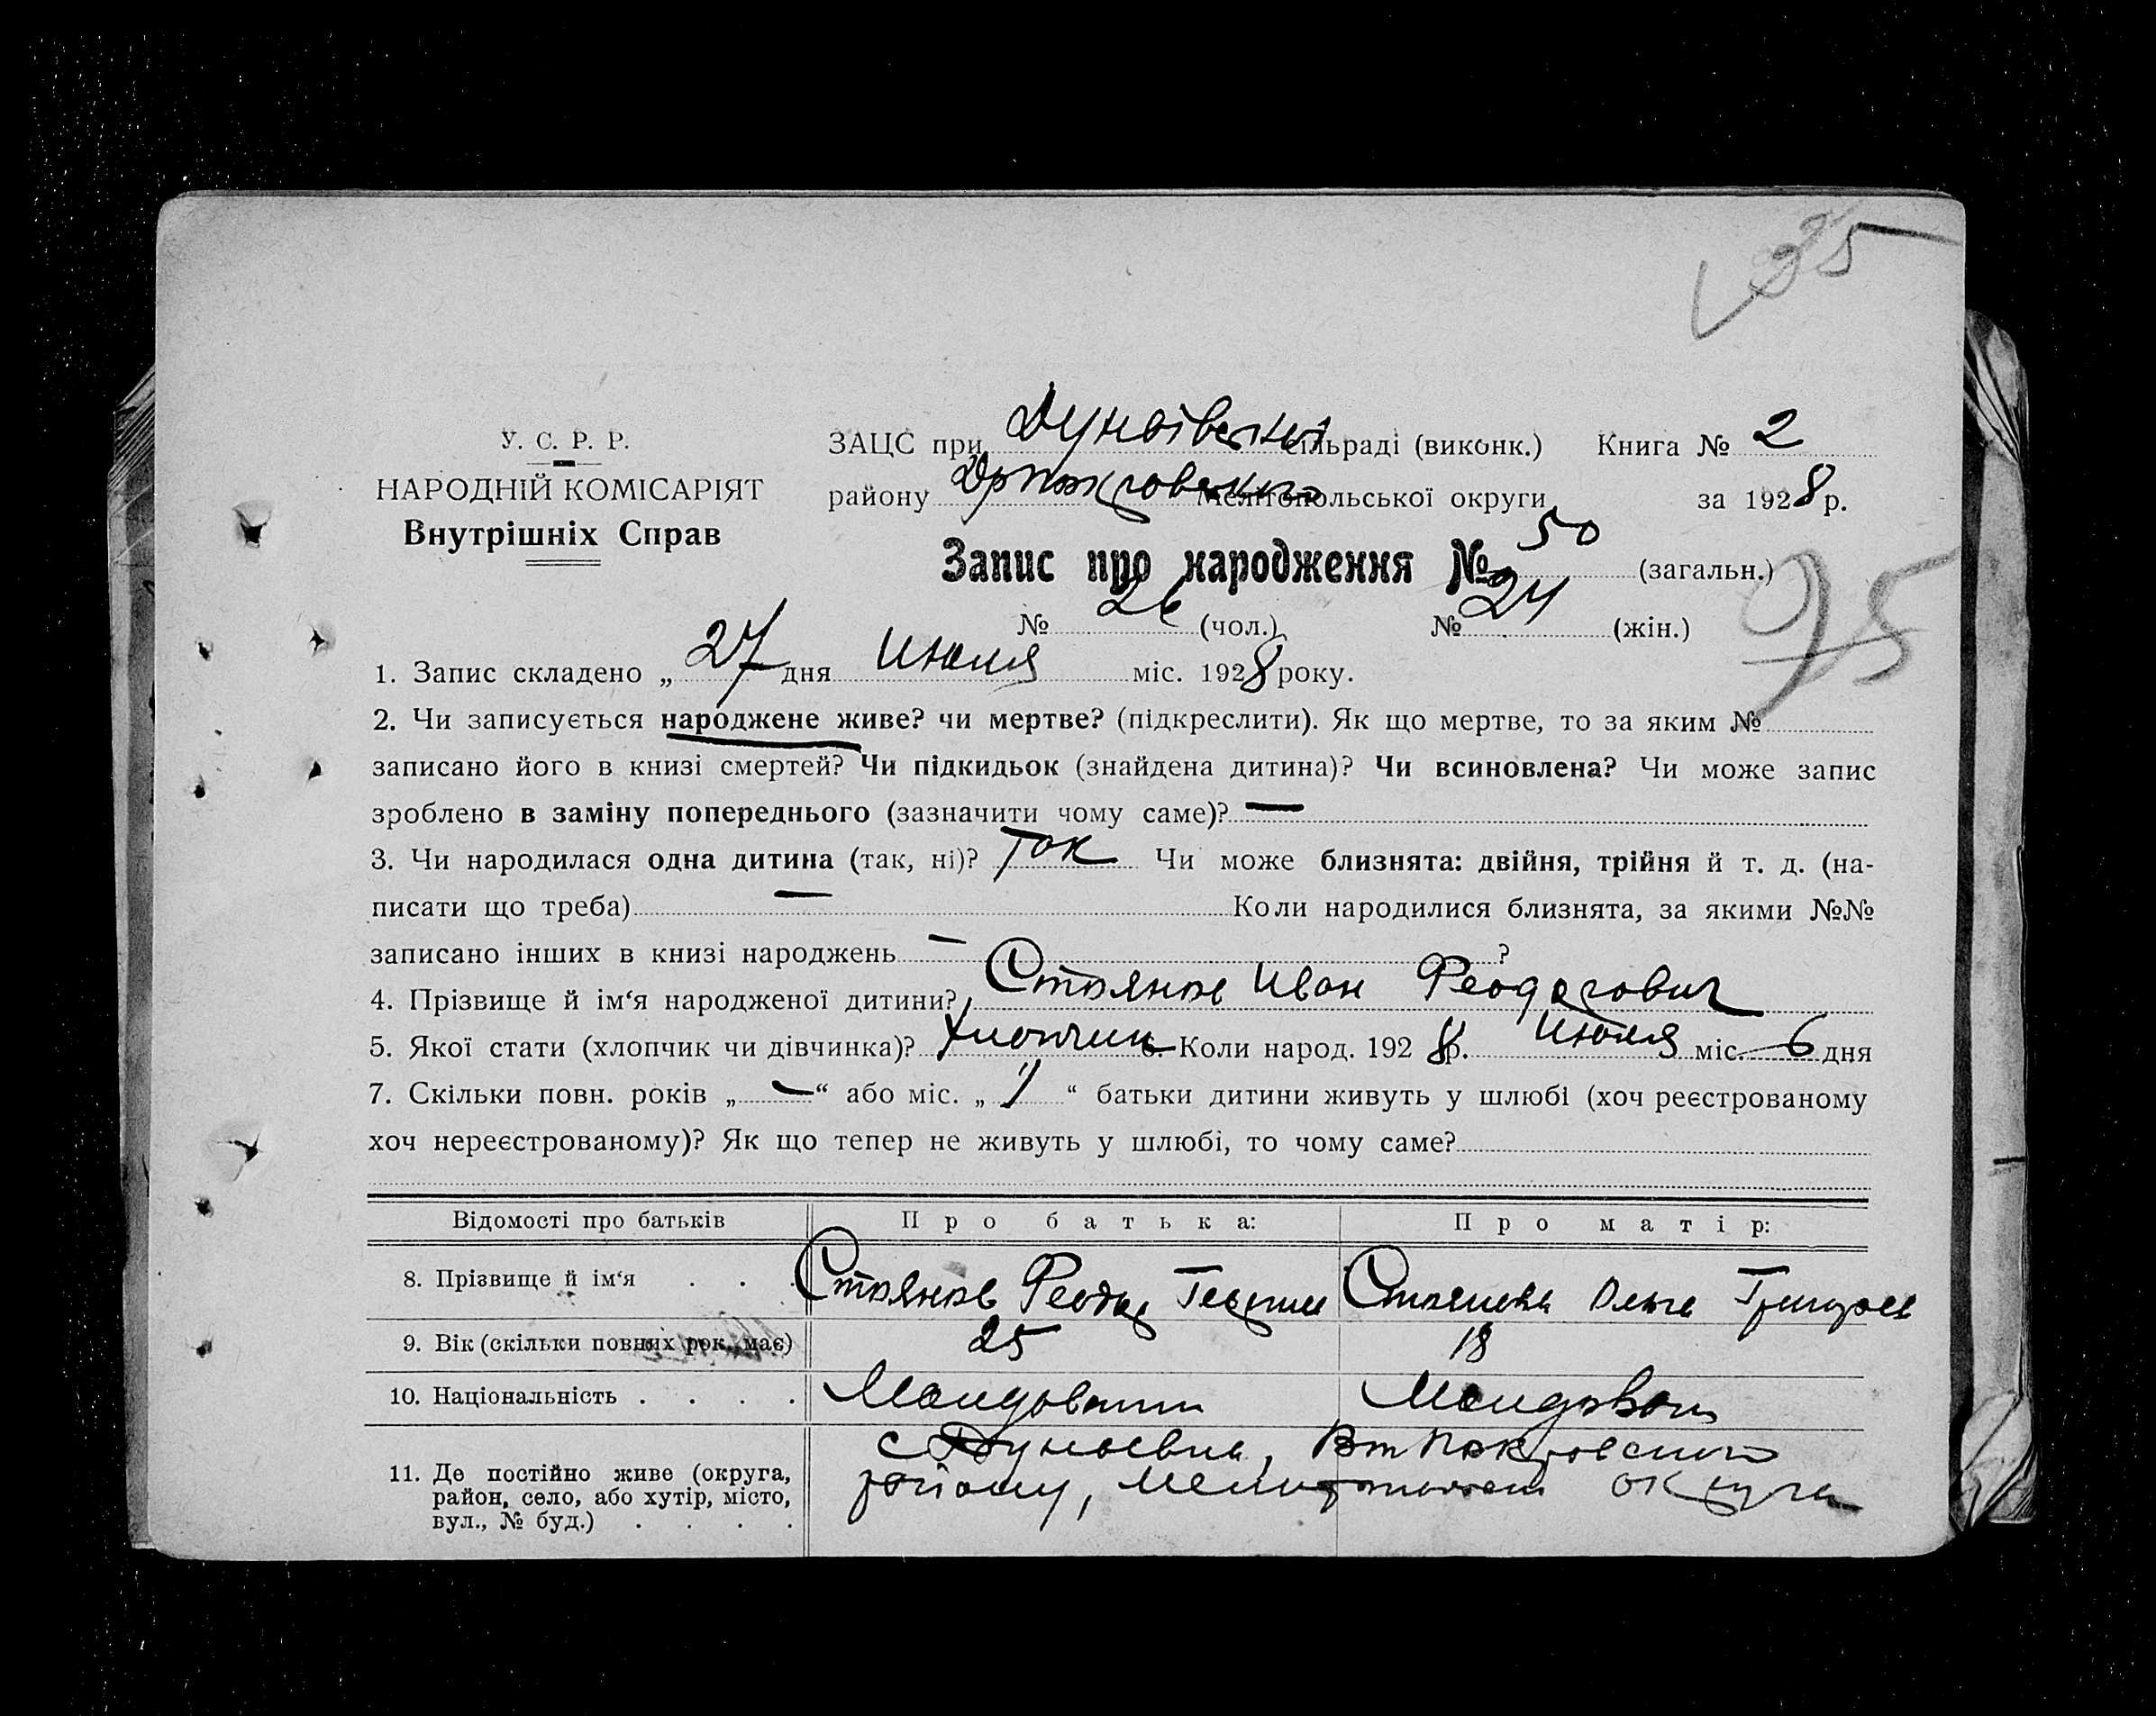 35
У. С. Р. Р.
НАРОДНІЙ КОМІСАРІЯТ
Внутрішніх Справ
ЗАЦС при Дунаївській сільраді (виконк.) Книга № 2
району Мелітопольської округи за 1928 р.
Запис про народження № 50 (загальн.)
№ 26 (чол.) № 24 (жін.)
75
1. Запис складено „ 27 дня Июля міс. 1928 року.
2. Чи записується народжене живе? чи мертве? (підкреслити). Як що мертве, то за яким №
записано його в книзі смертей? Чи підкидьок (знайдена дитина)? Чи всиновлена? Чи може запис
зроблено в заміну попереднього (зазначити чому саме)? —
3. Чи народилася одна дитина (так, ні)? Так Чи може близнята: двійня, трійня й т. д. (на-
писати що треба) — Коли народилися близнята, за якими №№
записано інших в книзі народжень — ?
4. Прізвище й ім‘я народженої дитини? Стоянов Иван Феодорович
5. Якої стати (хлопчик чи дівчинка)? Хлопчик 6. Коли народ. 1928 р. Июля міс. 6 дня
7. Скільки повн. років „ — “ або міс. „ 11 “ батьки дитини живуть у шлюбі (хоч реєстрованому
хоч нереєстрованому)? Як що тепер не живуть у шлюбі, то чому саме?
Відомості про батьків Про батька: Про матір:
8. Прізвище й ім‘я . . . Стоянов Феодор Стоянова Ольга Григорьев
9. Вік (скільки повних рок. має) 25 18
10. Національність . . . . Молдован Молдован
11. Де постійно живе (округа, с Дунаевка, Покровского
район, село, або хутір, місто, району, округа
вул., № буд.) . . . .